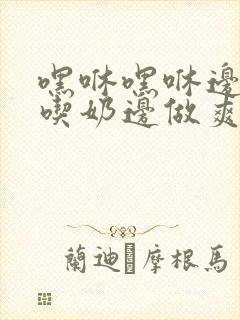 嘿咻嘿咻邊
喫奶邊做爽
蘭迪·摩根馬